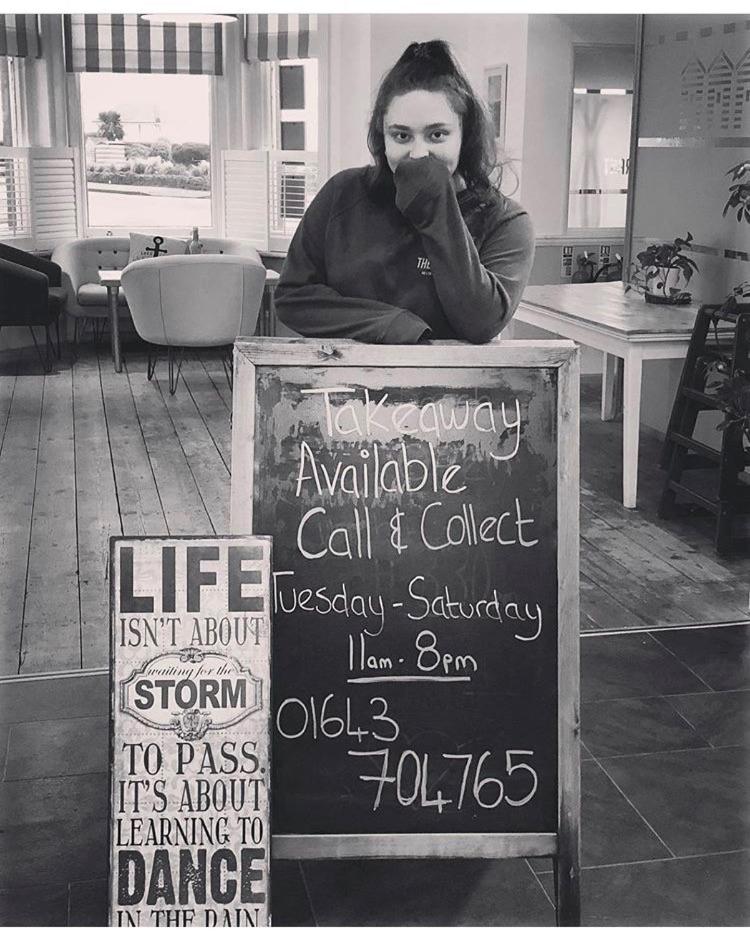 Takeaway
Available
Call & Collect
Tuesday - Saturday
11am - 8pm
01643
704765
LIFE
ISN'T ABOUT
waiting for the
STORM
TO PASS.
IT'S ABOUT
LEARNING TO
DANCE
IN THE RAIN